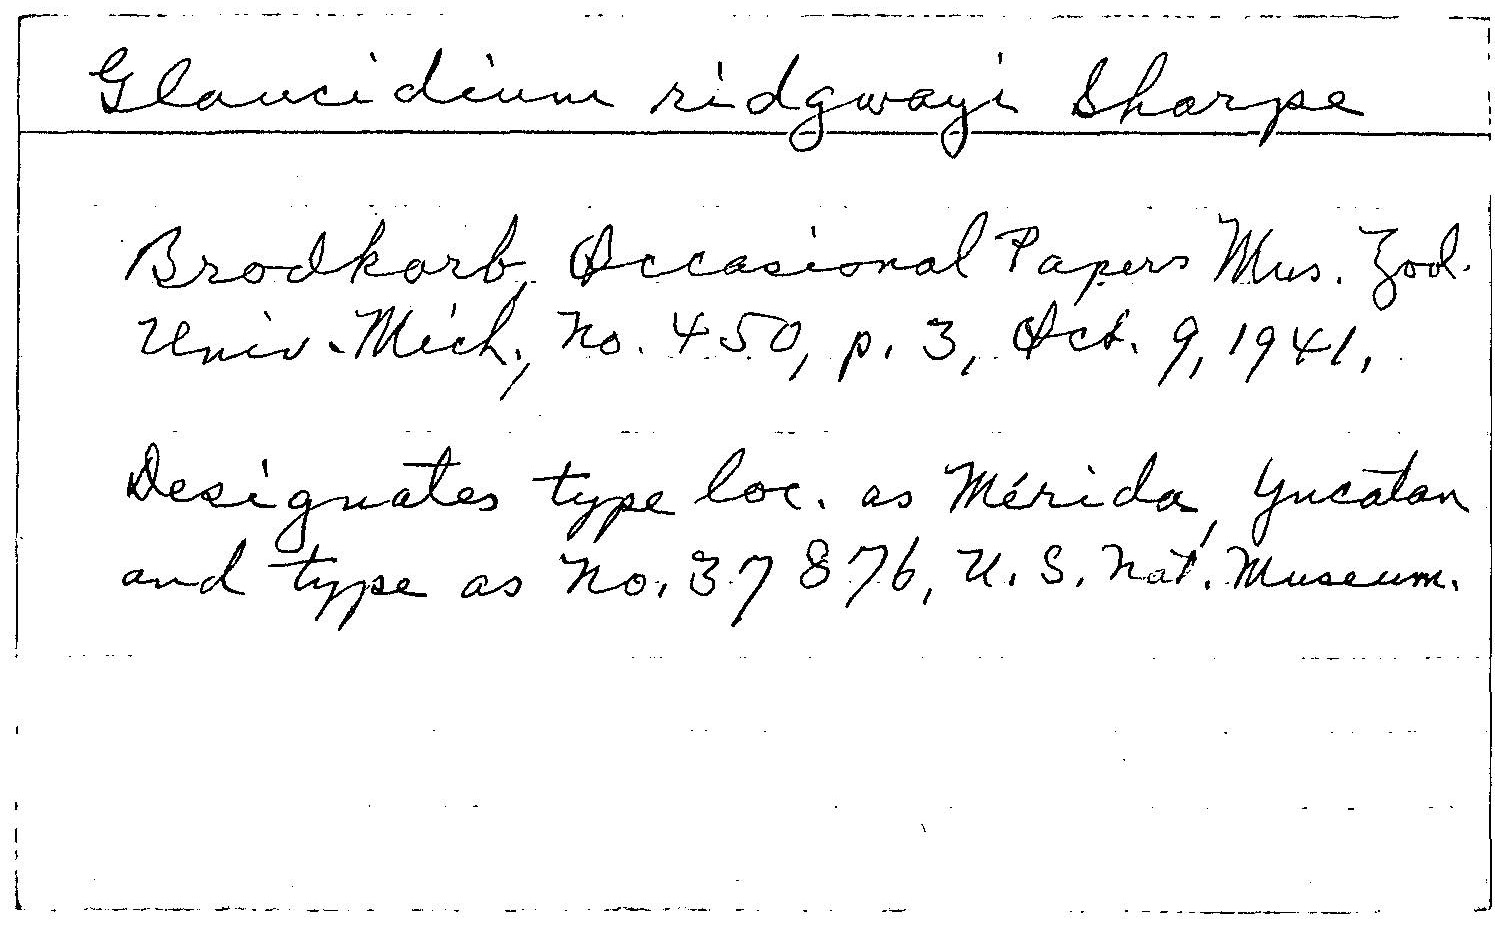 Glaucidium ridgwayi Sharpe
Brodkorb, Occasional Papers Mus. Zool.
Univ. Mich., No. 450, p. 3, Oct. 9, 1941.
Designates type loc. as Mérida, Yucatan
and type as No. 37876, U. S. Nat. Museum.